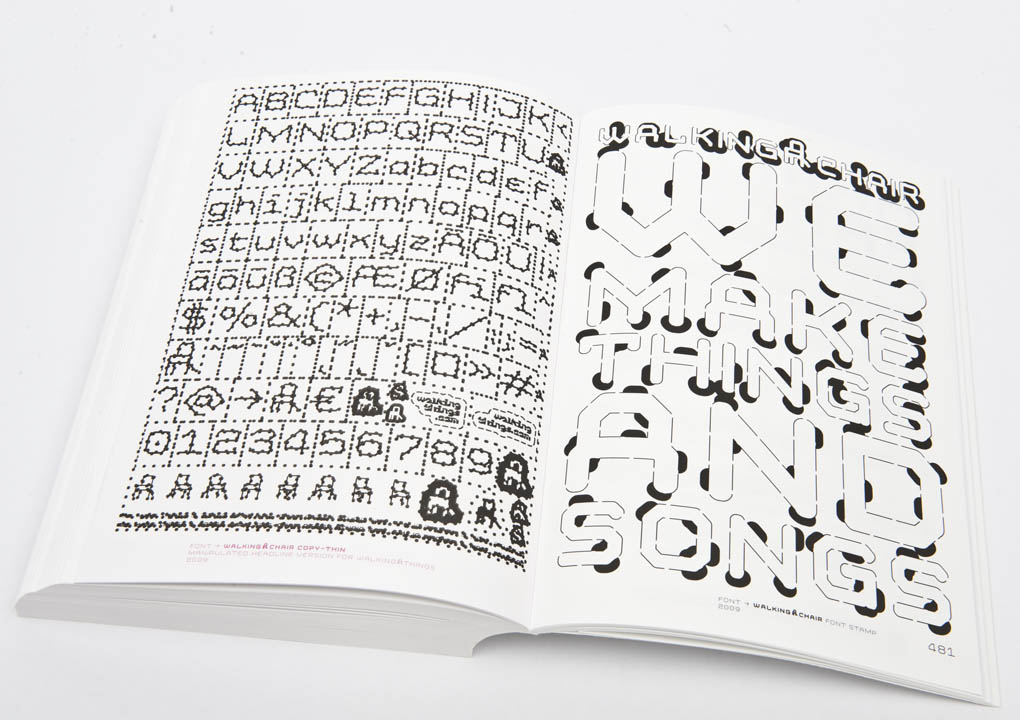 ABCDEFGHIJK
LMNOPQRSTU
VWXYZabcdef
ghijklmnopqr
stuvwxyzÄÖÜ
äöüß©ÆØ
$%&(*+,-/;=
[¤»#
?@→Å€
0123456789
FONT → WALKINGÅCHAIR COPY-THIN
MANIPULATED HEADLINE VERSION FOR WALKINGÅTHINGS
2009
WALKINGÅCHAIR
WE
MAKE
THINGS
AND
SONGS
FONT → WALKINGÅCHAIR FONT STAMP
2009
481